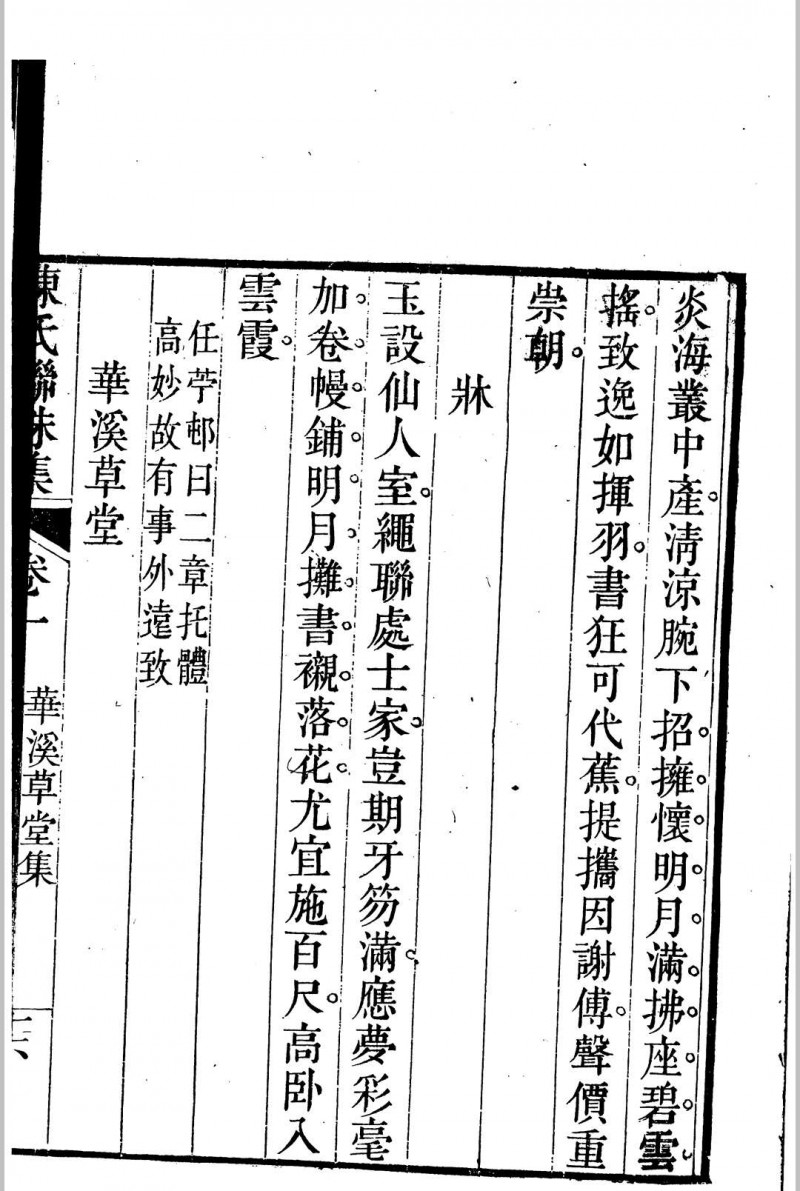 炎海叢中產清涼腕下招擁懷明月滿拂座碧雲
搖致逸如揮羽書狂可代蕉提攜因謝傅聲價重
崇朝
牀
玉設仙人室繩聯處士家豈期牙笏滿應夢彩毫
加卷幔鋪明月攤書襯落花尤宜施百尺高卧入
雲霞
任苧邨曰二章托體
高妙故有事外遠致
華溪草堂
陳氏聯珠集
卷一
華溪草堂集